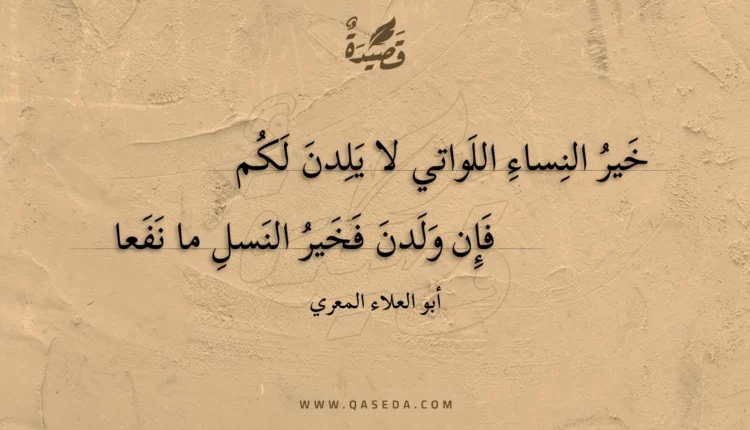 قَصِيْدَةٌ
خَيرُ النِساءِ اللَواتي لا يَلِدنَ لَكُم
فَإِن وَلَدنَ فَخَيرُ النَسلِ ما نَفَعا
أبو العلاء المعري
WWW.QASEDA.COM